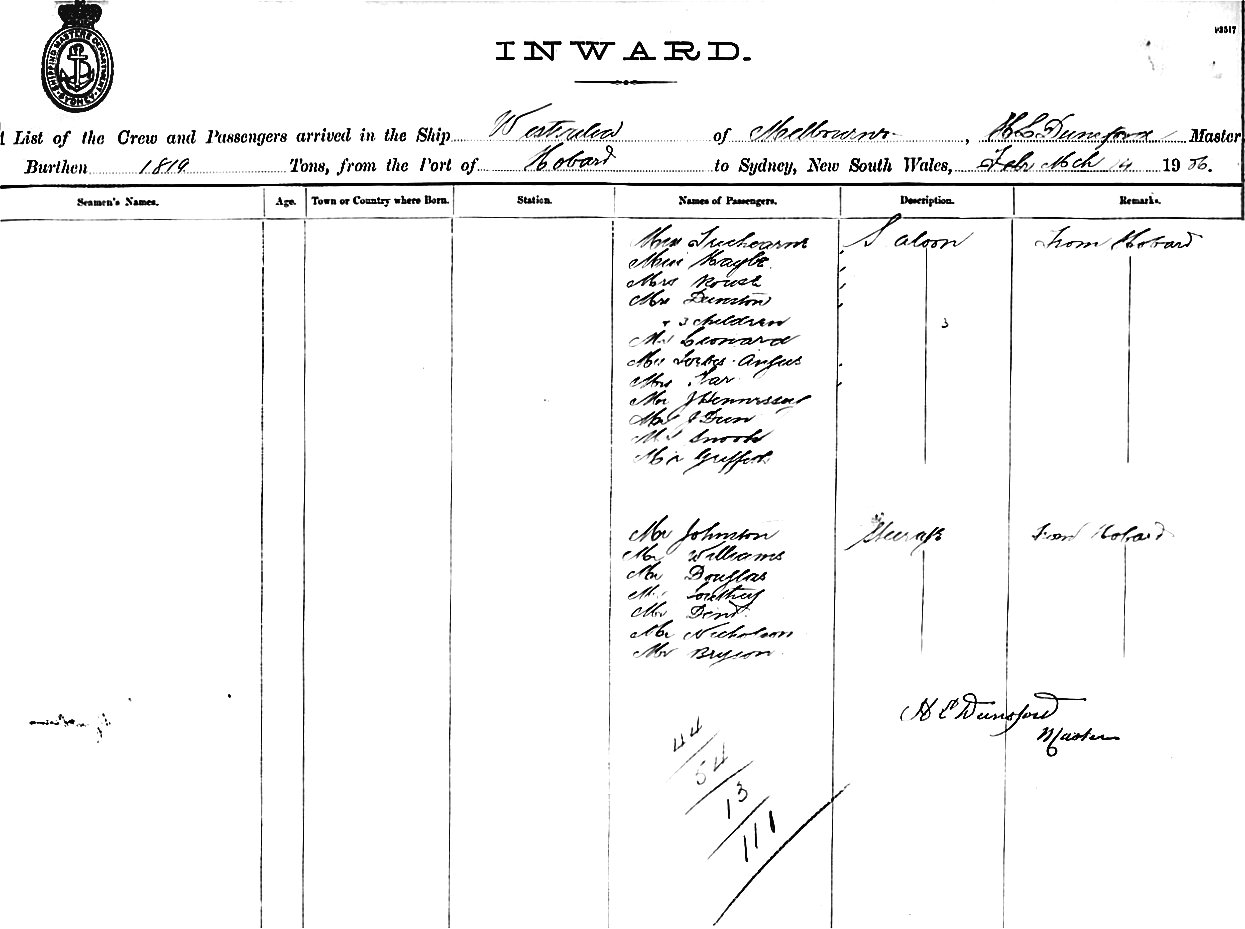 SHIPPING MASTERS DEPARTMENT SYDNEY
INWARD.
List of the Crew and Passengers arrived in the Ship Westralia of Melbourne, H E Dunsford Master
Burthen 1819 Tons, from the Port of Hobard to Sydney, New South Wales, Feb Mch 14 1906.
Seamen's Names. Age. Town or Country where Born. Station. Names of Passengers. Description. Remarks.
Miss Saloon From Hobard
Miss
Mrs Rouse
Mrs Dunston
+ 3 children 3
Mr Leonard
Forbes Angus
Mrs
Mr J Hennessey
J Dun
Snook
Griffith
Mr Johnston Steerage From Hobard
Mr Williams
Mr Douglas
Southey
Mr Dent
Mr Nicholson
Mr Bryson
H E Dunsford
Master
44
54
13
111